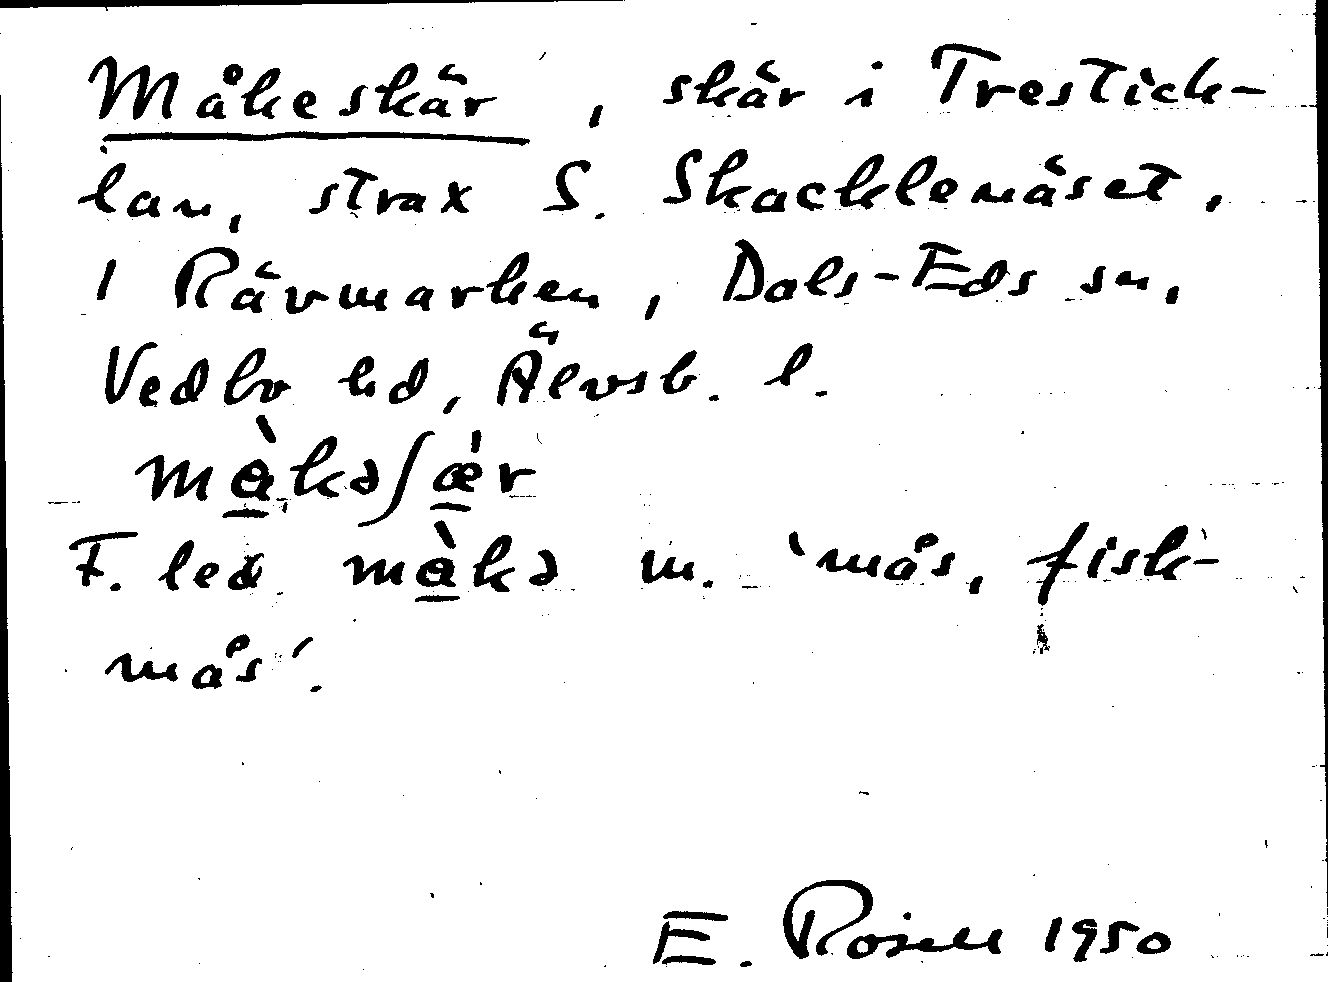 Måkeskär, skär i Trestick-
lan, strax S. Skacklenäset.
I Rävmarken, Dals-Eds sn,
Vedbo hd, Älvsb. l.
mə̀kəʃæ̀r
F. led mə̀kə m. 'mås, fisk-
mås'.
E. Rosell 1950